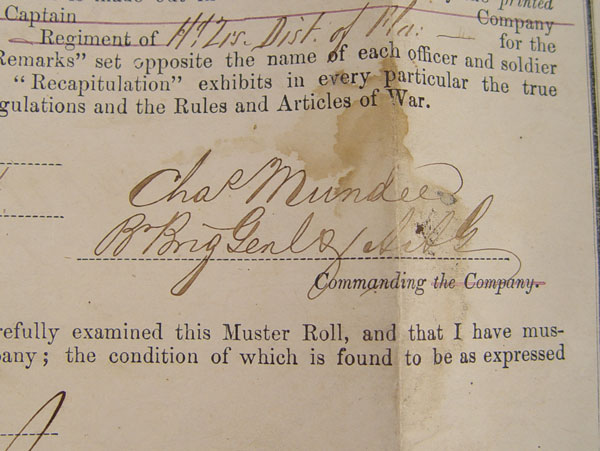 is made out in the printed
Captain Company
Regiment of Hd Qrs. Dist. of Fla: for the
Remarks" set opposite the name of each officer and soldier
"Recapitulation" exhibits in every particular the true
gulations and the Rules and Articles of War.
Chas Mundee
Br Brig Genl & AAG
Commanding the Company.
refully examined this Muster Roll, and that I have mus-
pany; the condition of which is found to be as expressed